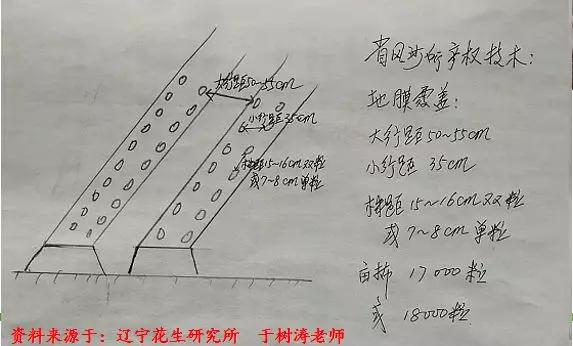 大行距50~55cm
小行距35cm
株距15~16cm双粒
或7~8cm单粒
省风沙所产权技术:
地膜覆盖:
大行距50~55cm
小行距 35cm
株距15~16cm双粒
或7~8cm单粒
亩播 17000粒
或 18000粒
资料来源于: 辽宁花生研究所 于树涛老师